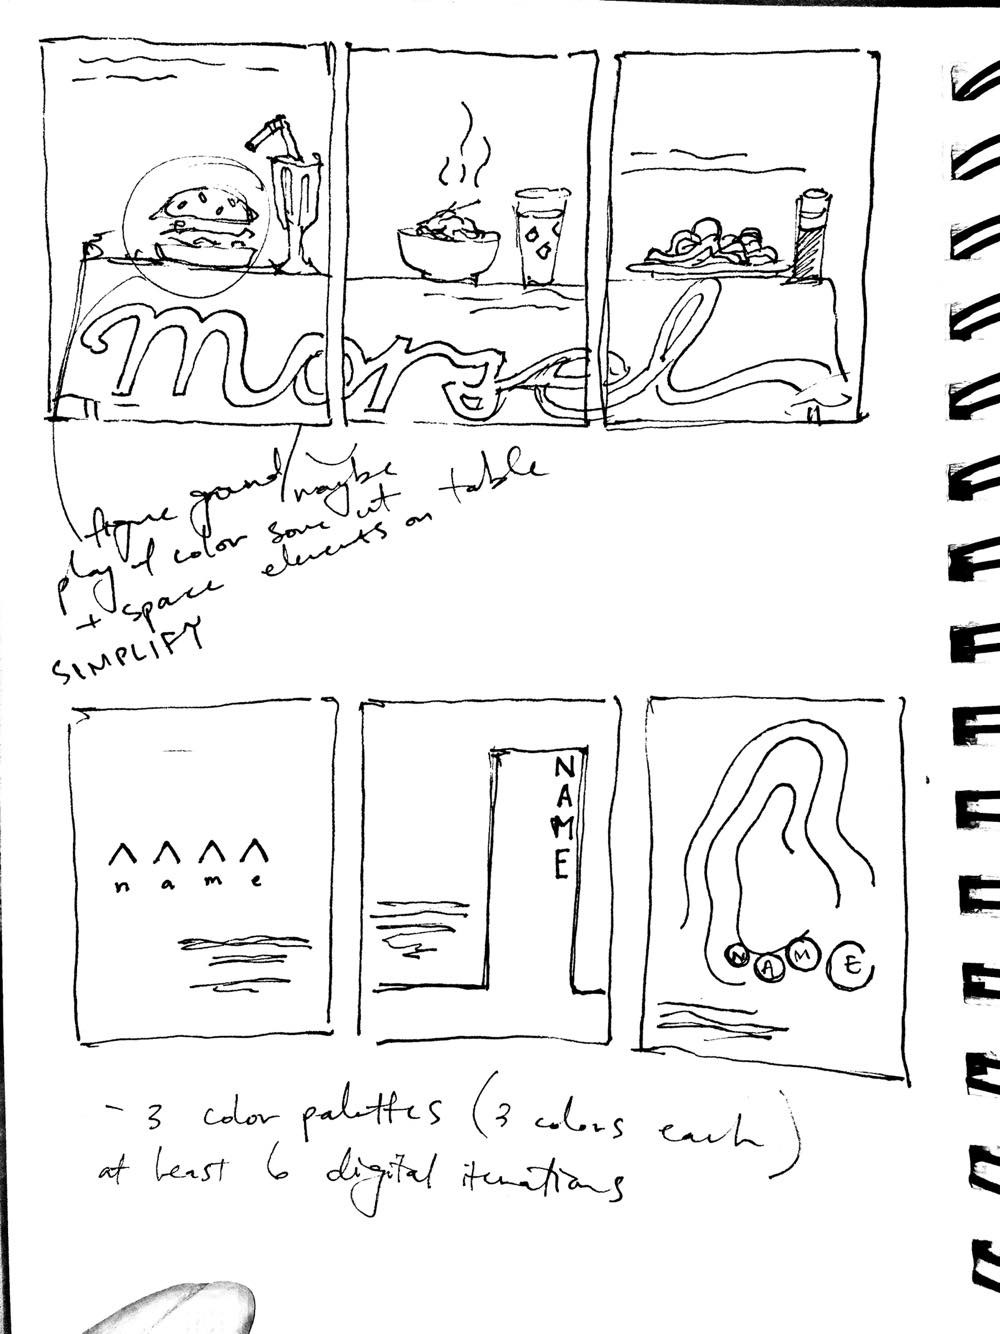 morsel
figure ground / maybe
play of color some cut
+ space elements on table
SIMPLIFY
n a m e
NAME
NAME
- 3 color palettes (3 colors each)
at least 6 digital iterations